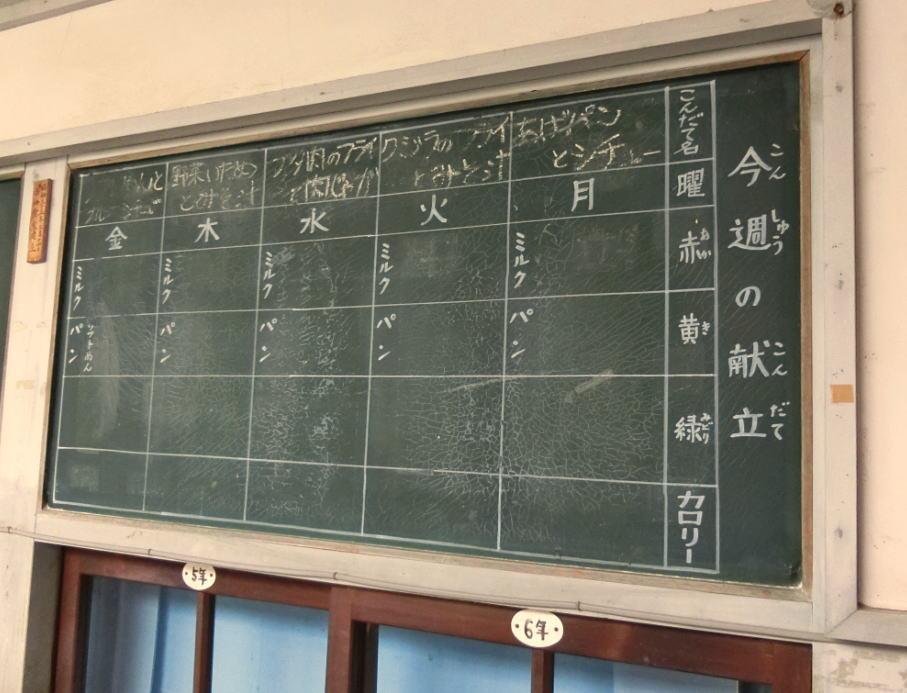 今週の献立
こん しゅう こん だて
こんだて名
曜
赤
あか
黄
き
緑
みどり
カロリー
あげパン
とシチュー
月
ミルク
パン
クジラのフライ
とみそ汁
火
ミルク
パン
肉のフライ
水
ミルク
パン
野菜いため
とみそ汁
木
ミルク
パン
金
ミルク
パン
ソフトめん
5年
6年